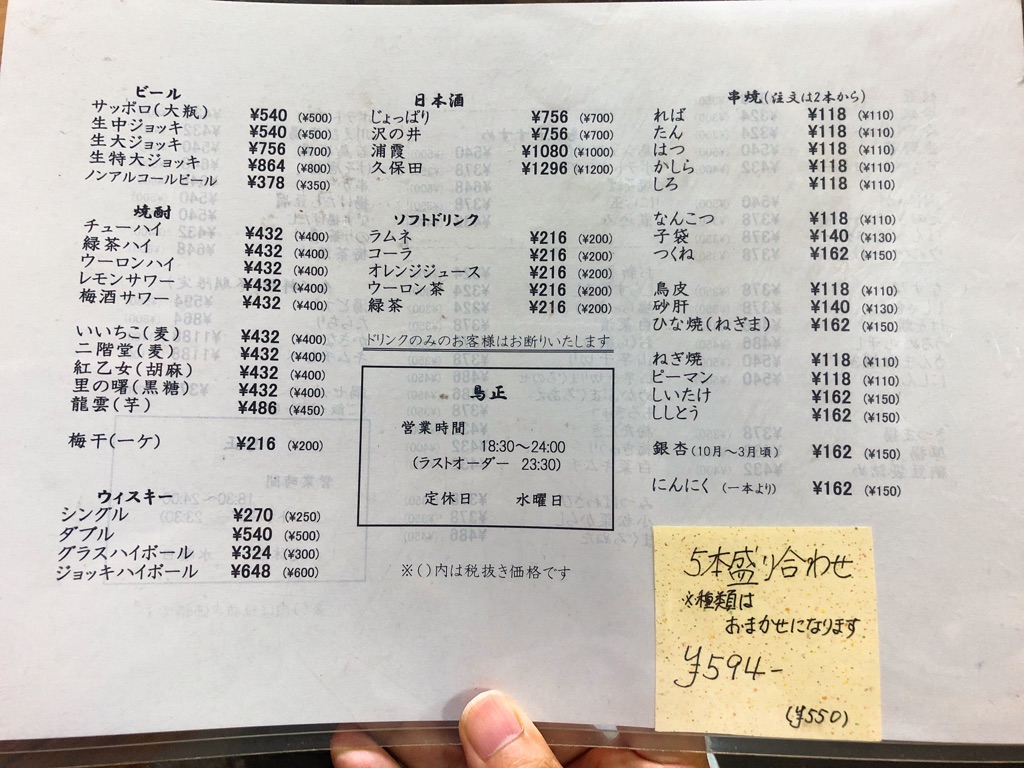 ビール
サッポロ(大瓶) ¥540 (¥500)
生中ジョッキ ¥540 (¥500)
生大ジョッキ ¥756 (¥700)
生特大ジョッキ ¥864 (¥800)
ノンアルコールビール ¥378 (¥350)
焼酎
チューハイ ¥432 (¥400)
緑茶ハイ ¥432 (¥400)
ウーロンハイ ¥432 (¥400)
レモンサワー ¥432 (¥400)
梅酒サワー ¥432 (¥400)
いいちこ(麦) ¥432 (¥400)
二階堂(麦) ¥432 (¥400)
紅乙女(胡麻) ¥432 (¥400)
里の曙(黒糖) ¥432 (¥400)
龍雲(芋) ¥486 (¥450)
梅干(一ケ) ¥216 (¥200)
ウィスキー
シングル ¥270 (¥250)
ダブル ¥540 (¥500)
グラスハイボール ¥324 (¥300)
ジョッキハイボール ¥648 (¥600)
日本酒
じょっぱり ¥756 (¥700)
沢の井 ¥756 (¥700)
浦霞 ¥1080 (¥1000)
久保田 ¥1296 (¥1200)
ソフトドリンク
ラムネ ¥216 (¥200)
コーラ ¥216 (¥200)
オレンジジュース ¥216 (¥200)
ウーロン茶 ¥216 (¥200)
緑茶 ¥216 (¥200)
ドリンクのみのお客様はお断りいたします
鳥正
営業時間
18:30～24:00
(ラストオーダー 23:30)
定休日 水曜日
※()内は税抜き価格です
串焼(注文は2本から)
ればー ¥118 (¥110)
たん ¥118 (¥110)
はつ ¥118 (¥110)
かしら ¥118 (¥110)
しろ ¥118 (¥110)
なんこつ ¥118 (¥110)
子袋 ¥140 (¥130)
つくね ¥162 (¥150)
鳥皮 ¥118 (¥110)
砂肝 ¥140 (¥130)
ひな焼(ねぎま) ¥162 (¥150)
ねぎ焼 ¥118 (¥110)
ピーマン ¥118 (¥110)
しいたけ ¥162 (¥150)
ししとう ¥162 (¥150)
銀杏(10月～3月頃) ¥162 (¥150)
にんにく (一本より) ¥162 (¥150)
5本盛り合わせ
※種類は
おまかせになります
¥594-
(¥550)